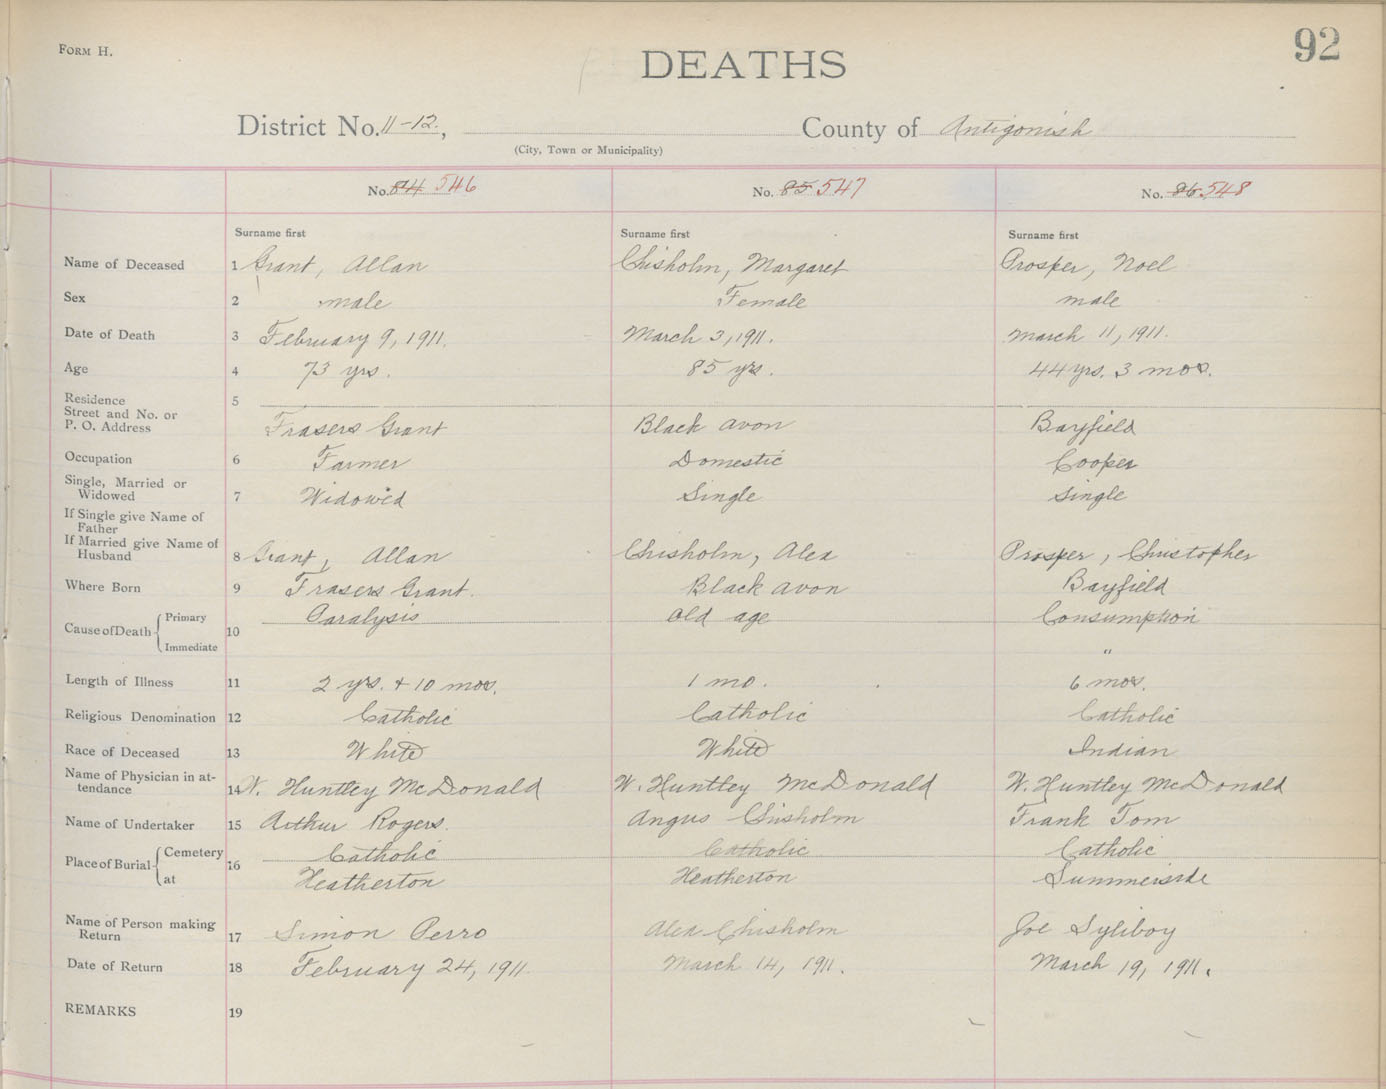 FORM H.
92
DEATHS
District No. 11-12, County of Antigonish
(City, Town or Municipality)
No. 84 546 No. 85 547 No. 86 548
Surname first Surname first Surname first
Name of Deceased 1 Grant, Allan Chisholm, Margaret Prosper, Noel
Sex 2 male Female male
Date of Death 3 February 9, 1911. March 3, 1911. March 11, 1911.
Age 4 73 yrs. 85 yrs. 44 yrs. 3 mos.
Residence 5
Street and No. or
P. O. Address Frasers Grant Black avon Bayfield
Occupation 6 Farmer Domestic Cooper
Single, Married or
Widowed 7 Widowed Single Single
If Single give Name of
Father
If Married give Name of
Husband 8 Grant, Allan Chisholm, Alex Prosper, Christopher
Where Born 9 Frasers Grant. Black avon Bayfield
Cause of Death { Primary 10 Paralysis old age Consumption
Immediate "
Length of Illness 11 2 yrs. + 10 mos. 1 mo. 6 mos.
Religious Denomination 12 Catholic Catholic Catholic
Race of Deceased 13 White White Indian
Name of Physician in at-
tendance 14 W. Huntley McDonald W. Huntley McDonald W. Huntley McDonald
Name of Undertaker 15 Arthur Rogers. Angus Chisholm Frank Tom
Place of Burial { Cemetery 16 Catholic Catholic Catholic
at Heatherton Heatherton Summerside
Name of Person making
Return 17 Simon Perro Alex Chisholm Joe Syliboy
Date of Return 18 February 24, 1911. March 14, 1911. March 19, 1911.
REMARKS 19